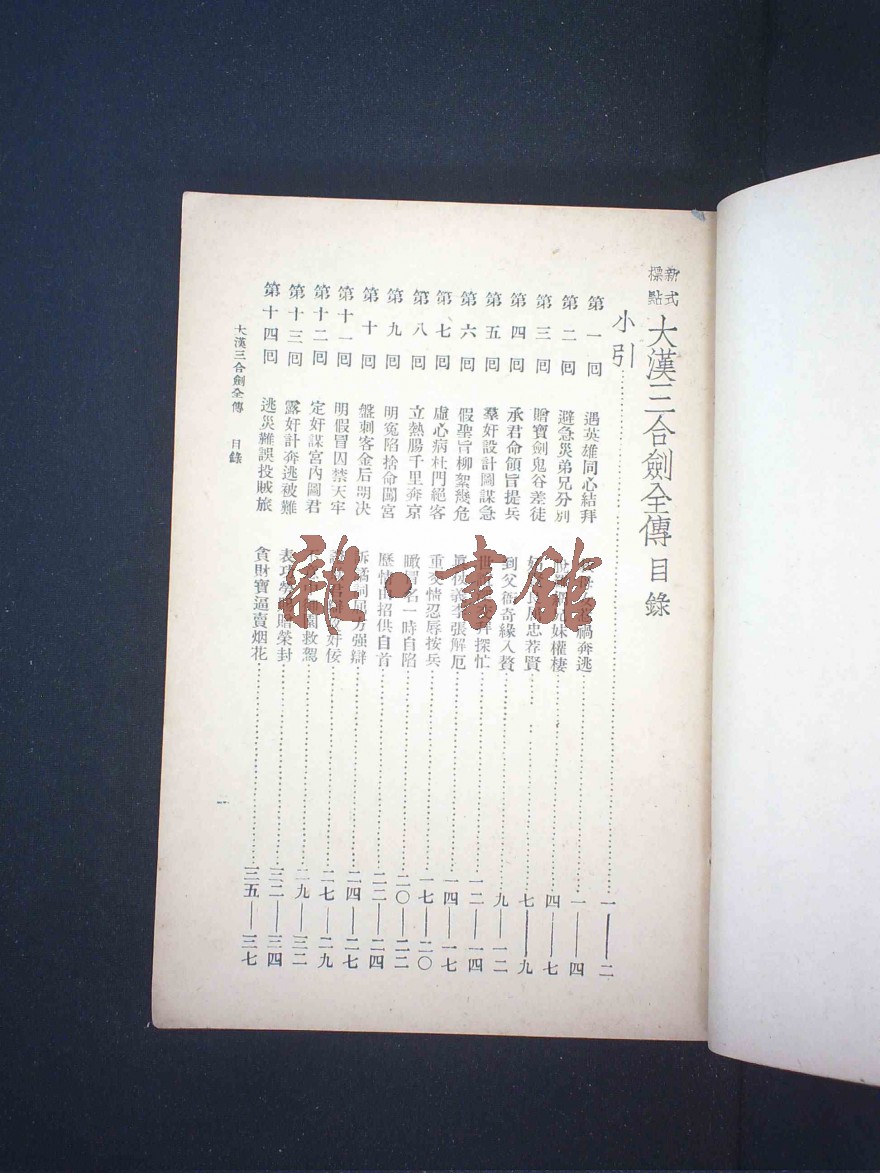 新式標點
大漢三合劍全傳目錄
小引……一——二
第一回 遇英雄同心結拜 禍奔逃……一——四
第二回 避急災弟兄分別 兄妹權棲……四——七
第三回 贈寶劍鬼谷差徒 忠荐賢……七——九
第四回 承君命領旨提兵 到父衙奇緣入贅……九——一二
第五回 羣奸設計圖謀急 探忙……一二——一四
第六回 假聖旨柳絮幾危 李張解厄……一四——一七
第七回 虛心病杜門絕客 重交情忍辱按兵……一七——二〇
第八回 立熱腸千里奔京 瞰冒名一時自陷……二〇——二二
第九回 明冤陷捨命闖宮 歷情由招供自首……二二——二四
第十回 盤刺客金后明决 訴 詞 力强辯……二四——二七
第十一回 明假冒囚禁天牢 奸佞……二七——二九
第十二回 定奸謀宮內圖君 園救駕……二九——三二
第十三回 露奸計奔逃被難 表功勞 贈榮封……三二——三四
第十四回 逃災難誤投賊旅 貪財寶逼賣烟花……三五——三七
大漢三合劍全傳 目錄
一
雜·書館